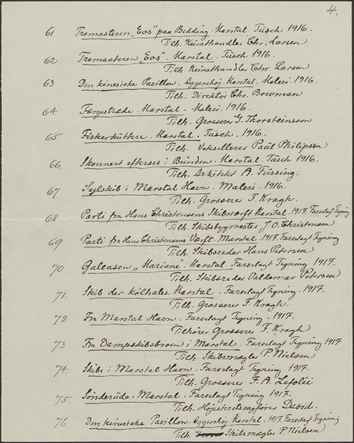 4.
61 Tremasteren "Eos" paa Bedding Marstal Tusch 1916.
Tilh. Kunsthandler Chr. Larsen
62 Tremasteren "Eos". Marstal. Tusch 1916.
Tilh Kunsthandler Chr Larsen
63 Den kinesiske Pavillon. Marstal. Maleri 1916.
Tilh. Direktör Chr. Bowman
64 Færgestræde Marstal - Maleri. 1916.
Tilh. Grosserer G. Thorsteinsson
65 Fiskerkuttere - Marstal. Tusch. 1916.
Tilh. Vekselerer Paul Philipsen
66 Skonnert efterses i Bunden. Marstal Tusch 1916.
Tilh. Arkitekt A.
67 Sejlskib i Marstal Havn - Maleri - 1916.
Tilh. Grosserer F. Kragh.
68 Parti fra Hans Christensens Marstal. 1917. Farvelagt Tegning
Tilh. Skibsbygmester J. O. Christensen
69 Parti fra Hans Christensens Værft Marstal. 1917. Farvelagt Tegning
Tilh. Skibsreder Hans Petersen
70 Galeasen "Mariane". Marstal. Farvelagt Tegning. 1917.
Tilh. Skibsreder Valdemar Petersen
71. Skib der kølhales Marstal - Farvelagt Tegning - 1917.
Tilh. Grosserer F. Kragh.
72 Fra Marstal Havn. Farvelagt Tegning. 1917.
Tilhører Grosserer F. Kragh
73 Fra Dampskibsbroen i Marstal. Farvelagt Tegning 1917
Tilh. Skibsmægler P. Nielsen
74. Skibe i Marstal Havn. Farvelagt Tegning. 1917.
Tilh. Grosserer F. A.
75 Sönderrade - Marstal - Farvelagt Tegning 1917.
Tilh.
76 Den kinesiske Pavillon Marstal. 1917. Farvelagt Tegning
Tilh. Skibsmægler P. Nielsen